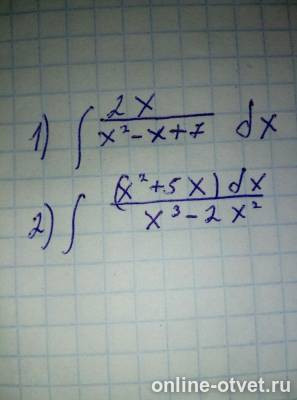 1) ∫ 2x / (x² - x + 7) dx
2) ∫ (x² + 5x) dx / (x³ - 2x²)
online-otvet.ru